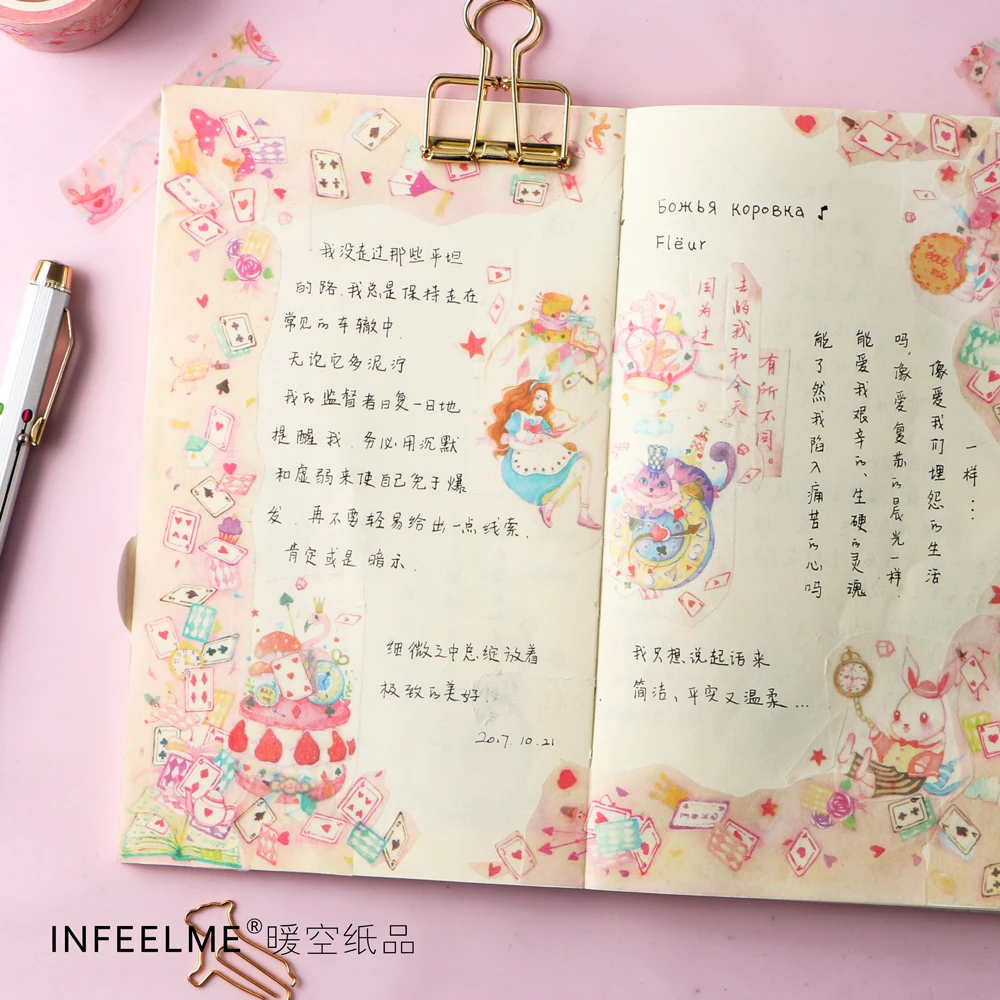 我没走过那些平坦
的路.我总是保持走在
常见的车辙中.
无论它多泥泞
我的监督者日复一日地
提醒我.务必用沉默
和虚弱来使自己免于爆
发.再不要轻易给出一点线索.
肯定或是暗示.
细微之中总绽放着
极致的美好.
2017.10.21
Божья коровка ♪
Flëur
因为过
去的我和今天
有所不同。
一样...
像爱我们埋怨的生活
吗,像爱复苏的晨光一样.
能爱我艰辛的、生硬的灵魂
能了然我陷入痛苦的心吗
我只想说起话来
简洁、平实又温柔...
eat me
INFEELME®暖空纸品